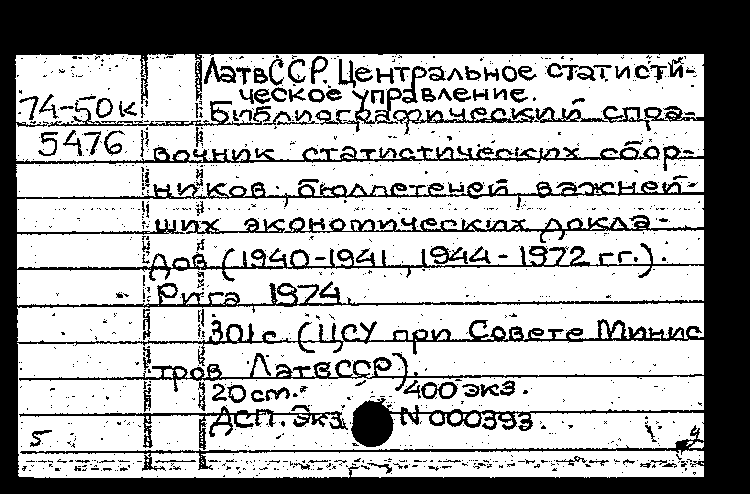 ЛатвССР. Центральное статисти-
ческое управление.
74-50к Библиографический спра-
5476 вочник статистических сбор-
ников, бюллетеней, важней-
ших экономических докла-
дов (1940-1941, 1944-1972 гг.).
Рига, 1974.
301 с. (ЦСУ при Совете Минис
тров ЛатвССР).
20 см. 400 экз.
ДСП. Экз N 000393.
5